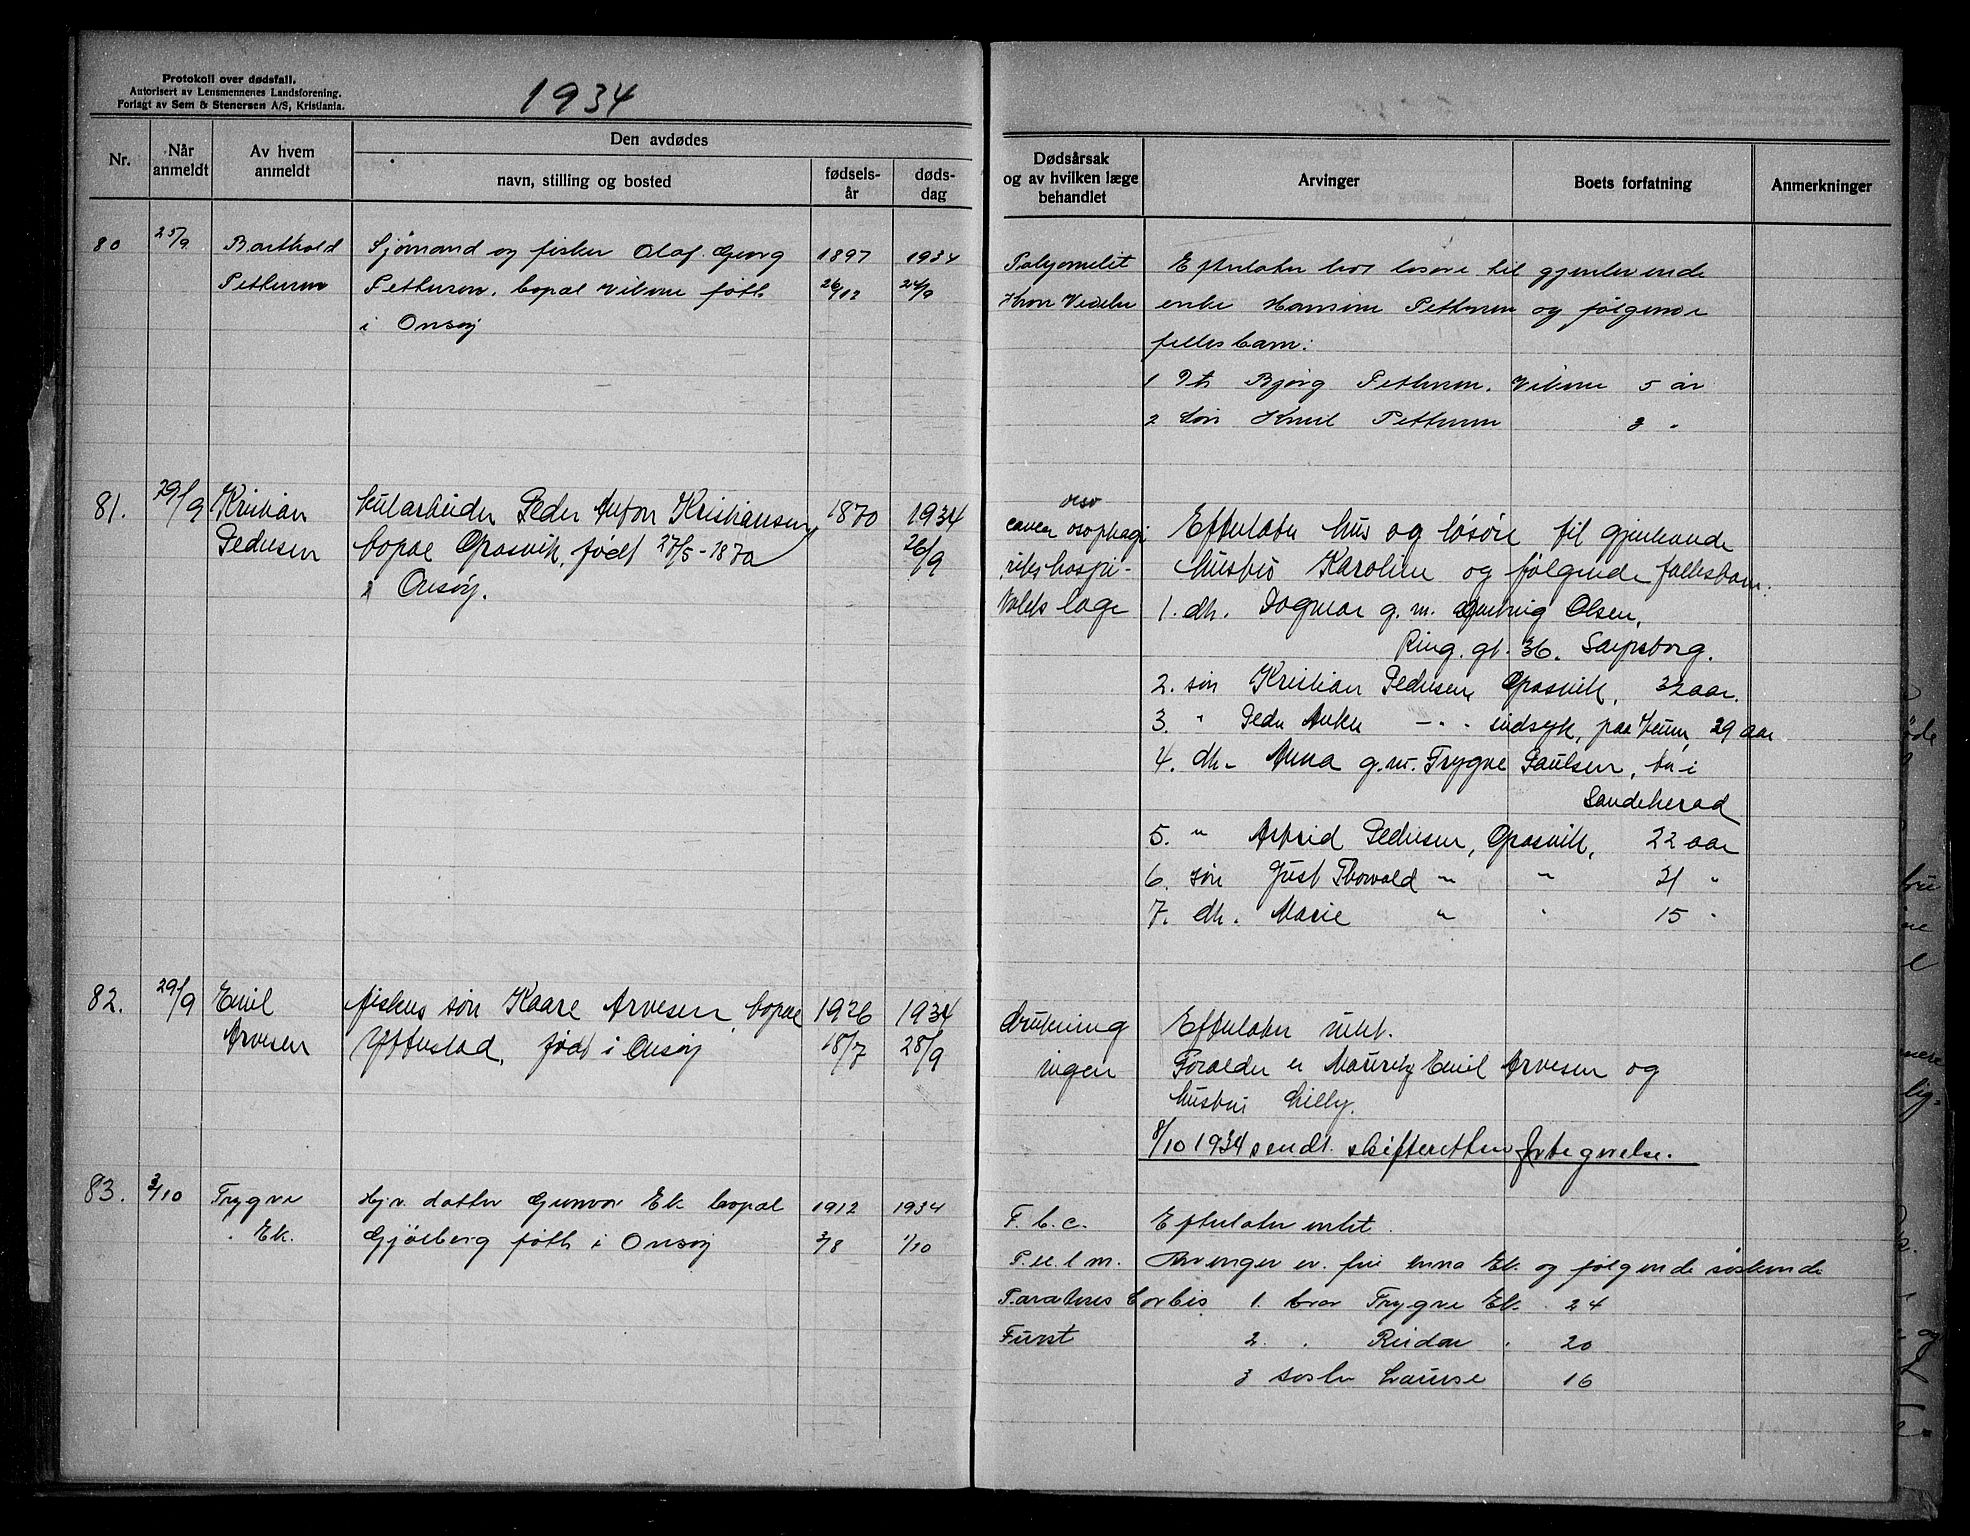 Protokoll over dødsfall.
Autorisert av Lensmennenes Landsforening.
Forlagt av Sem & Stenersen A/S, Kristiania.
1934
Nr.
Når anmeldt
Av hvem anmeldt
Den avdødes
navn, stilling og bosted
fødsels-år
døds-dag
Dødsårsak
og av hvilken læge
behandlet
Arvinger
Boets forfatning
Anmerkninger
80 25/9 Barthold Sjømand og fisker Olaf Georg 1897 1934
Pettersen Pettersen, bopæl Vikene født 26/12 24/9
i Onsøy
Polyomelit Efterlater hos løsøre til gjenlevende
enke Hansine Pettersen og følgende
fellesbarn:
1 Dtr Bjørg Pettersen, Vikene 5 år
2 Søn Knut Pettersen 3 "
81. 29/9 Kristian Peder Anton Kristiansen 1870 1934
Pedersen bopæl Græsvik, født 27/5-1870 26/9
i Onsøy.
oeso
cancer osophagi Efterlater hus og løsøre til gjenlevende
rikshospi- hustru Karoline og følgende fellesbarn.
talets læge 1. dtr. Dagmar g. m. Olsen,
Ring. gt. 36. Sarpsborg.
2. søn Kristian Pedersen Græsvik, 32 aar.
3. " Peder - " - sindsyk, paa Veum, 29 aar
4. dtr. Anna g.m. Trygve Paulsen, bor i
Sandeherad
5. " Astrid Pedersen, Græsvik, 22 aar
6. søn Gust Thorvald " " 21 "
7. dtr. Marie " " 15 "
82. 29/9 Emil fiskers søn Kaare Arvesen, bopæl 1926 1934
Arvesen født i Onsøy 18/7 28/9
drukning Efterlater intet.
ingen Forældre er Mauritz Emil Arvesen og
hustru Lilly.
8/10 1934 sendt skifteretten forbegivelse.
83. 3/10 Trygve Hjv. datter Gunvor Ek bopæl 1912 1934
" Ek. Gjølberg født i Onsøy 3/8 1/10
T. b. c. Efterlater intet.
Arvinger er fru Anna Ek. og følgende søskende
1. bror Trygve Ek. 24
Furst 2. " Reidar " 20
3 søster Laurse 16